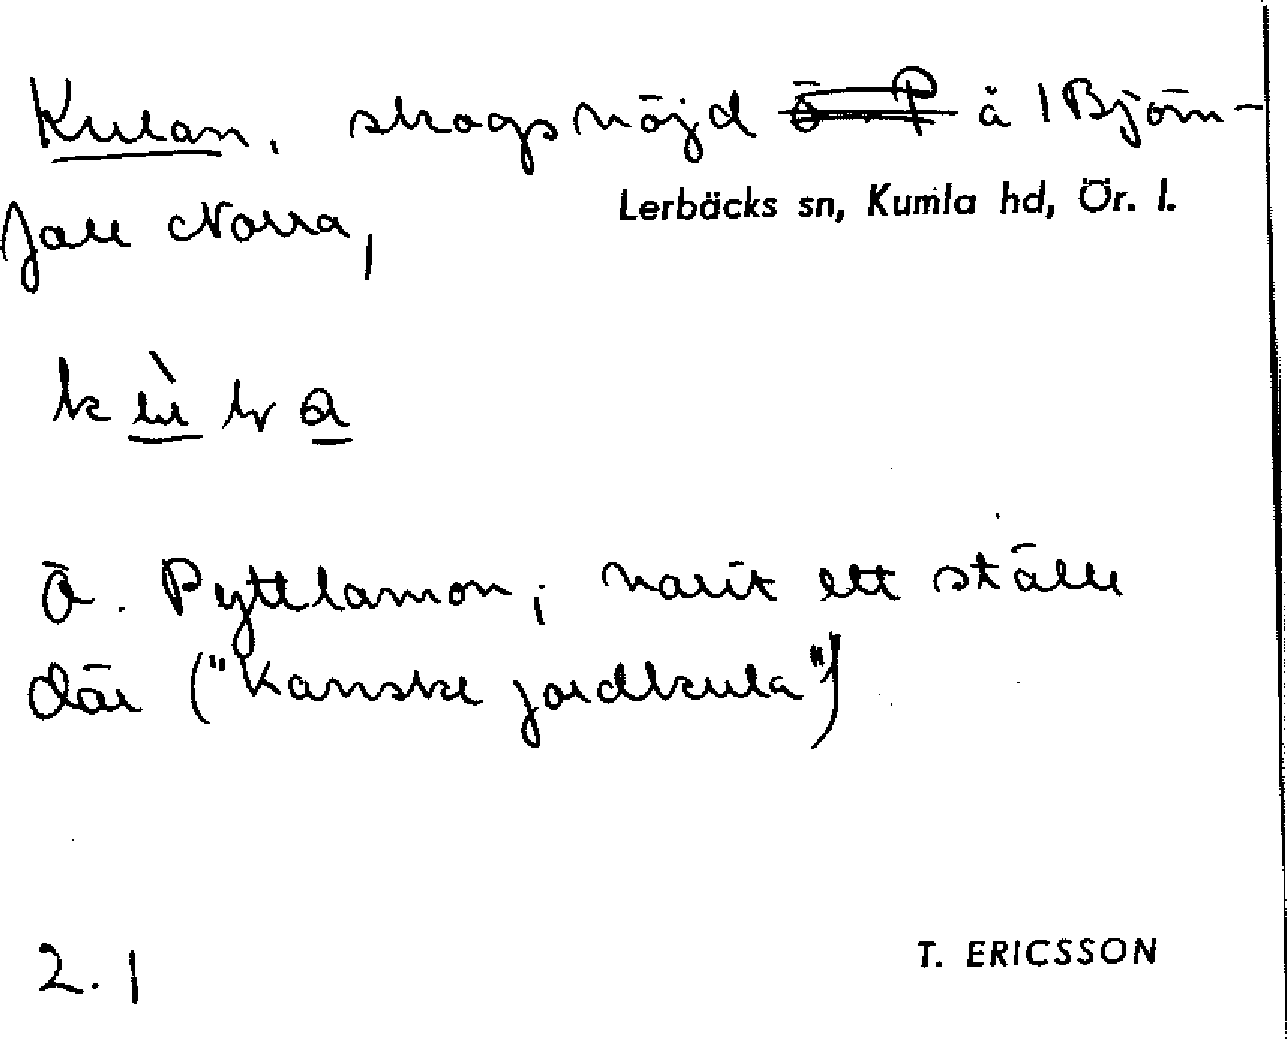 Kulan, skogshöjd å 1 Björn-
fall Norra,
Lerbäcks sn, Kumla hd, Ör. l.
Ö. Pyttlamon; varit ett ställe
där ("Kanske jordkula")
2.1
T. ERICSSON